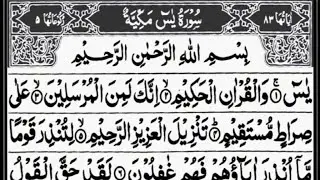 اٰیَاتُهَا ٨٣ سُوْرَةُ يٰسٓ مَكِّيَّةٌ رُكُوْعَاتُهَا ٥
بِسْمِ اللهِ الرَّحْمٰنِ الرَّحِيْمِ
يٰسٓ ۝١ وَالْقُرْاٰنِ الْحَكِيْمِ ۝٢ اِنَّكَ لَمِنَ الْمُرْسَلِيْنَ ۝٣ عَلٰى
صِرَاطٍ مُّسْتَقِيْمٍ ۝٤ تَنْزِيْلَ الْعَزِيْزِ الرَّحِيْمِ ۝٥ لِتُنْذِرَ قَوْمًا
مَّاۤ اُنْذِرَ اٰبَآؤُهُمْ فَهُمْ غٰفِلُوْنَ ۝٦ لَقَدْ حَقَّ الْقَوْلُ